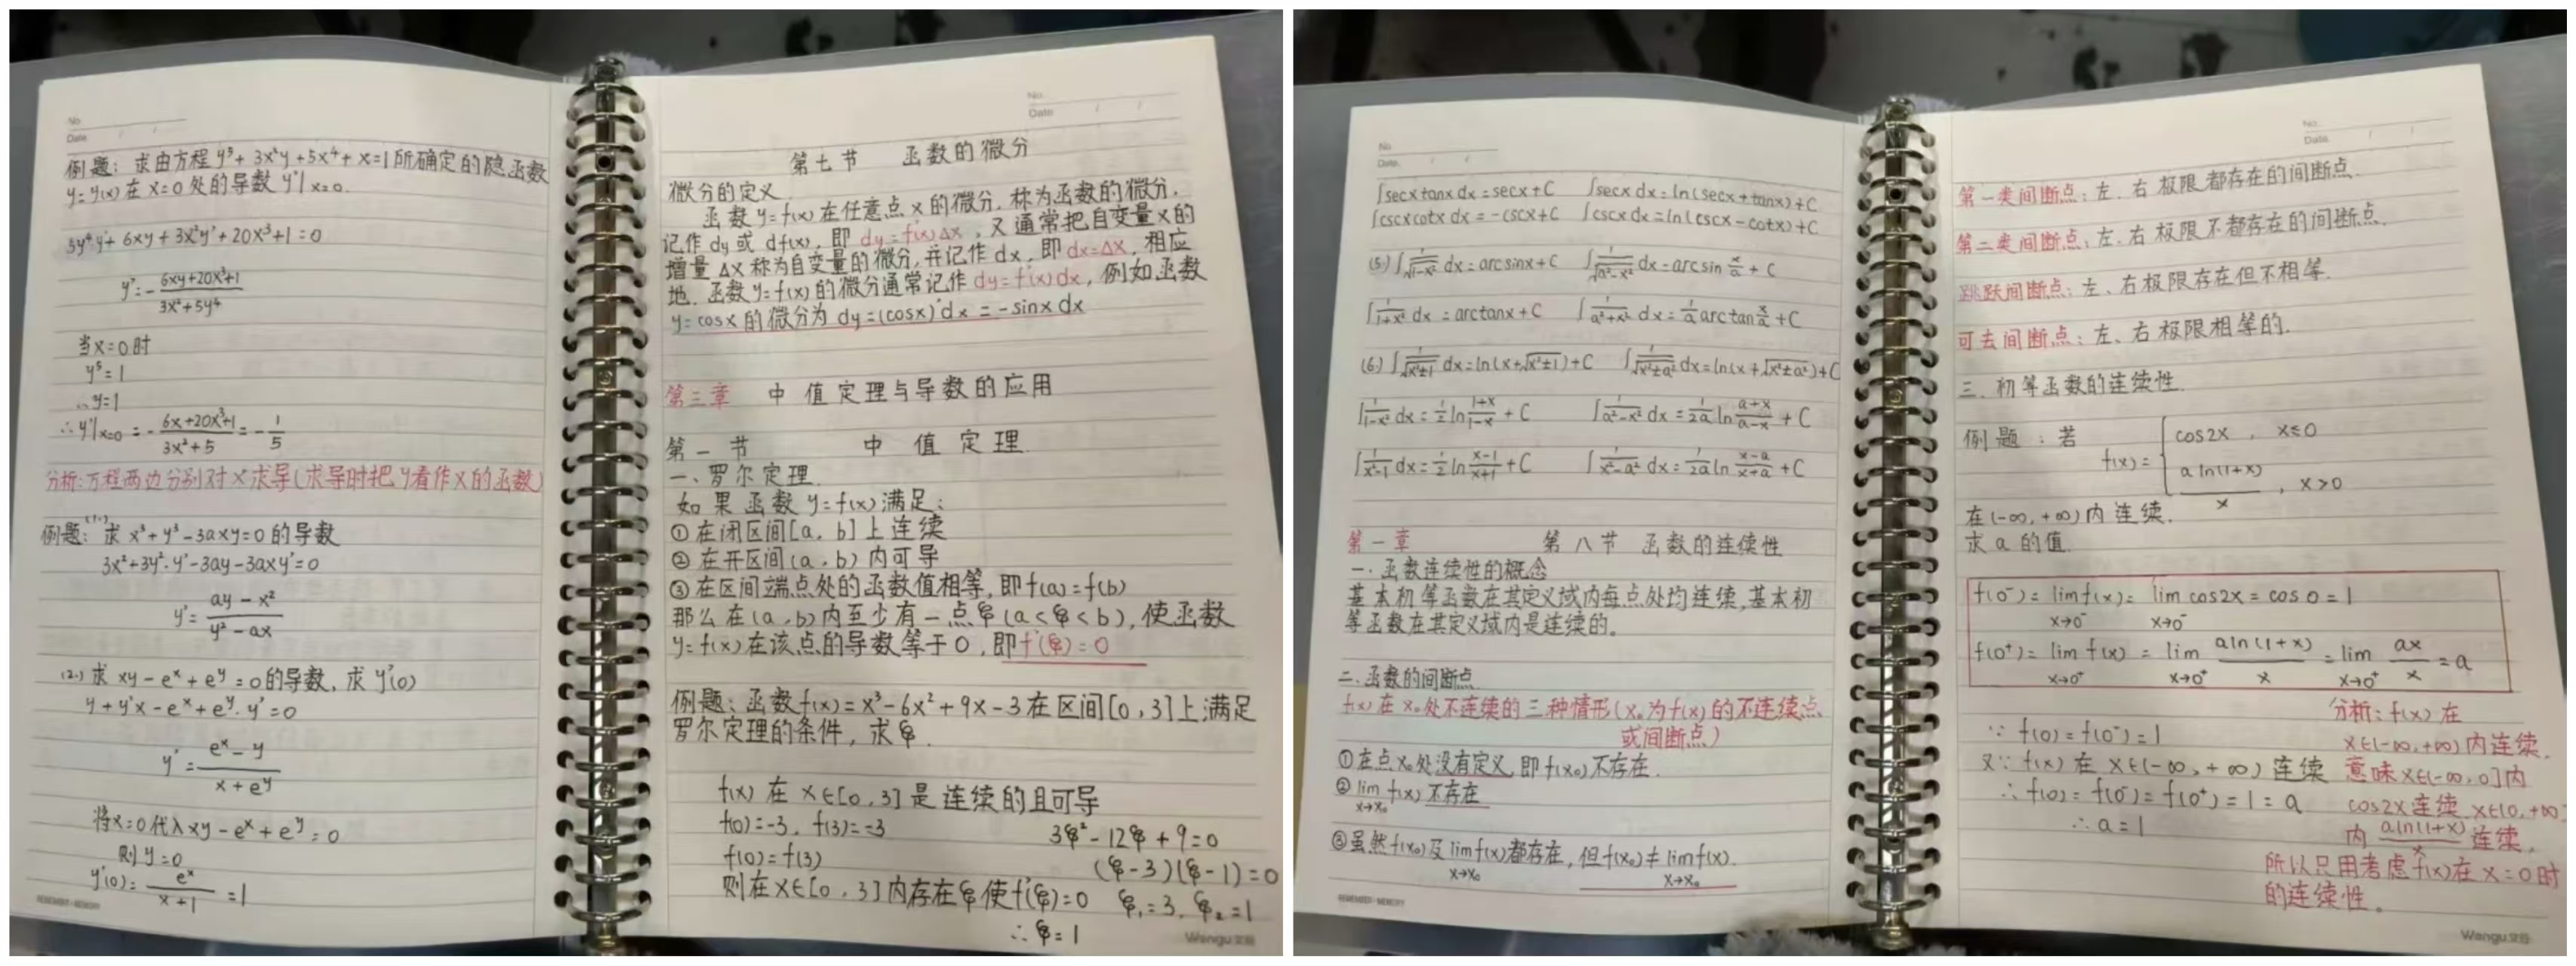 No.
Date / /
例题：求由方程 y⁵+3x²y+5x⁴+x=1所确定的隐函数
y=y(x)在x=0处的导数 y'|x=0.
5y⁴y'+6xy+3x²y'+20x³+1=0
y'=-(6xy+20x³+1)/(3x²+5y⁴)
当x=0时
y⁵=1
∴y=1
∴y'|x=0 = -(6x+20x³+1)/(3x²+5) = -1/5
分析:方程两边分别对x求导(求导时把y看作x的函数)
例题：(1.)求 x³+y³-3axy=0的导数
3x²+3y²·y'-3ay-3axy'=0
y'=(ay-x²)/(y²-ax)
(2.)求 xy-eˣ+eʸ=0的导数，求y'(0)
y+y'x-eˣ+eʸ·y'=0
y'=(eˣ-y)/(x+eʸ)
将x=0代入xy-eˣ+eʸ=0
则y=0
y'(0)=eˣ/(x+1)=1
REMEMBER·MEMORY
No.
Date / /
第七节 函数的微分
微分的定义
函数y=f(x)在任意点x的微分，称为函数的微分，
记作dy或df(x)，即dy=f'(x)Δx，又通常把自变量x的
增量Δx称为自变量的微分，并记作dx，即dx=Δx，相应
地，函数y=f(x)的微分通常记作dy=f'(x)dx，例如函数
y=cosx的微分为dy=(cosx)'dx=-sinxdx
第三章 中值定理与导数的应用
第一节 中值定理
一、罗尔定理
如果函数y=f(x)满足：
①在闭区间[a,b]上连续
②在开区间(a,b)内可导
③在区间端点处的函数值相等，即f(a)=f(b)
那么在(a,b)内至少有一点ξ(a<ξ<b)，使函数
y=f(x)在该点的导数等于0，即f'(ξ)=0
例题：函数f(x)=x³-6x²+9x-3在区间[0,3]上满足
罗尔定理的条件，求ξ.
f(x)在x∈[0,3]是连续的且可导
f(0)=-3, f(3)=-3 3ξ²-12ξ+9=0
f(0)=f(3) (ξ-3)(ξ-1)=0
则在x∈[0,3]内存在ξ使f'(ξ)=0 ξ₁=3, ξ₂=1
∴ξ=1
Wengu 文谷
No.
Date / /
∫secxtanxdx=secx+C ∫secxdx=ln(secx+tanx)+C
∫cscxcotxdx=-cscx+C ∫cscxdx=ln(cscx-cotx)+C
(5.)∫1/√(1-x²)dx=arcsinx+C ∫1/√(a²-x²)dx=arcsin x/a+C
∫1/(1+x²)dx=arctanx+C ∫1/(a²+x²)dx=1/a arctan x/a+C
(6.)∫1/√(x²±1)dx=ln(x+√(x²±1))+C ∫1/√(x²±a²)dx=ln(x+√(x²±a²))+C
∫1/(1-x²)dx=1/2 ln (1+x)/(1-x)+C ∫1/(a²-x²)dx=1/2a ln (a+x)/(a-x)+C
∫1/(x²-1)dx=1/2 ln (x-1)/(x+1)+C ∫1/(x²-a²)dx=1/2a ln (x-a)/(x+a)+C
第一章 第八节 函数的连续性
一.函数连续性的概念
基本初等函数在其定义域内每点处均连续，基本初
等函数在其定义域内是连续的。
二.函数的间断点
f(x)在x₀处不连续的三种情形(x₀为f(x)的不连续点
或间断点)
①在点x₀处没有定义，即f(x₀)不存在.
②lim x→x₀ f(x)不存在
③虽然f(x₀)及lim x→x₀ f(x)都存在，但f(x₀)≠lim x→x₀ f(x).
REMEMBER·MEMORY
No.
Date / /
第一类间断点：左、右极限都存在的间断点.
第二类间断点：左、右极限不都存在的间断点.
跳跃间断点：左、右极限存在但不相等.
可去间断点：左、右极限相等的.
三.初等函数的连续性
例题：若 f(x)={cos2x, x≤0
aln(1+x)/x, x>0
在(-∞,+∞)内连续，
求a的值.
f(0⁻)=lim x→0⁻ f(x)=lim x→0⁻ cos2x=cos0=1
f(0⁺)=lim x→0⁺ f(x)=lim x→0⁺ aln(1+x)/x=lim x→0⁺ ax/x=a
∵f(0)=f(0⁻)=1
又∵f(x)在x∈(-∞,+∞)连续
∴f(0)=f(0⁻)=f(0⁺)=1=a
∴a=1
分析:f(x)在
x∈(-∞,+∞)内连续.
意味x∈(-∞,0]内
cos2x连续，x∈(0,+∞)
内aln(1+x)/x连续，
所以只用考虑f(x)在x=0时
的连续性。
Wengu 文谷